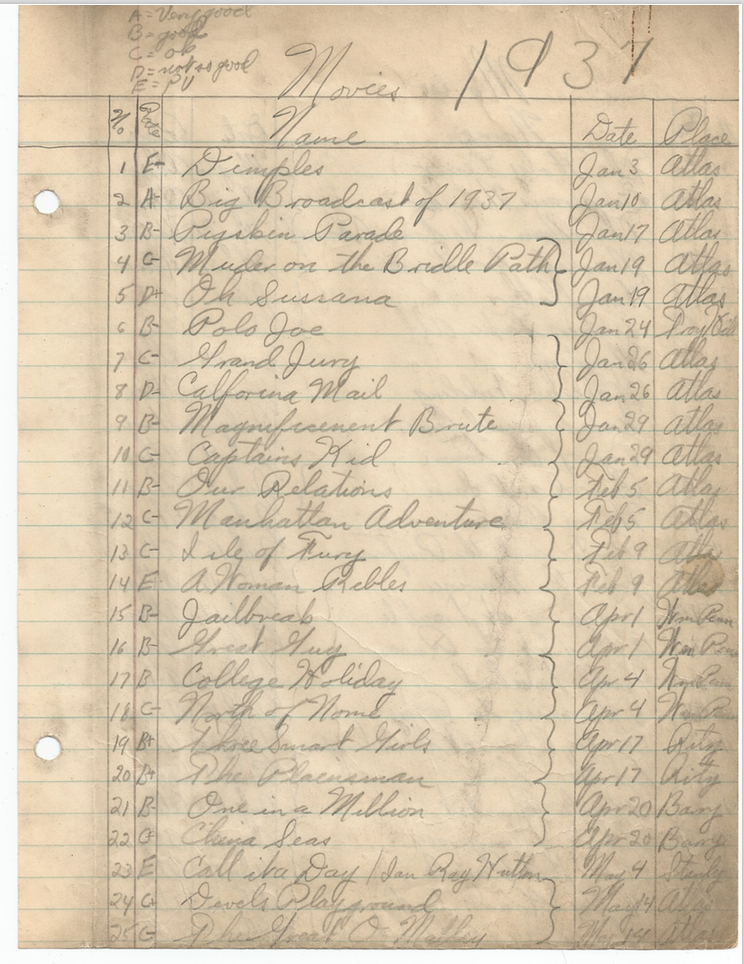 A = Very good
B = good
C = ok
D = not so good
E = PU
Movies 1937
No. Rate Name Date Place
1 E- Dimples Jan 3 Atlas
2 A- Big Broadcast of 1937 Jan 10 Atlas
3 B- Pigskin Parade Jan 17 Atlas
4 C- Muder on the Bridle Path Jan 19 Atlas
5 D+ Oh Sussana Jan 19 Atlas
6 B- Polo Joe Jan 24
7 C- Grand Jury Jan 26 Atlas
8 D- Calforina Mail Jan 26 Atlas
9 B- Magnificenent Brute Jan 29 Atlas
10 C- Captains Kid Jan 29 Atlas
11 B- Our Relations Feb 5 Atlas
12 C- Manhattan Adventure Feb 5 Atlas
13 C- Isle of Fury Feb 9 Atlas
14 E- A Woman Rebles Feb 9 Atlas
15 B- Jailbreak Apr 1 Wm Penn
16 B- Great Guy Apr 1 Wm Penn
17 B College Holiday Apr 4 Wm Penn
18 C- North of Nome Apr 4 Wm Penn
19 B+ Three Smart Girls Apr 17 Rity
20 B+ The Plainsman Apr 17 Rity
21 B- One in a Million Apr 20 Barry
22 C+ China Seas Apr 20 Barry
23 E Call it a Day / Ian Ray Hutton May 4
24 C- Devels Playground May 14 Atlas
25 C- The Great O Malley May 14 Atlas